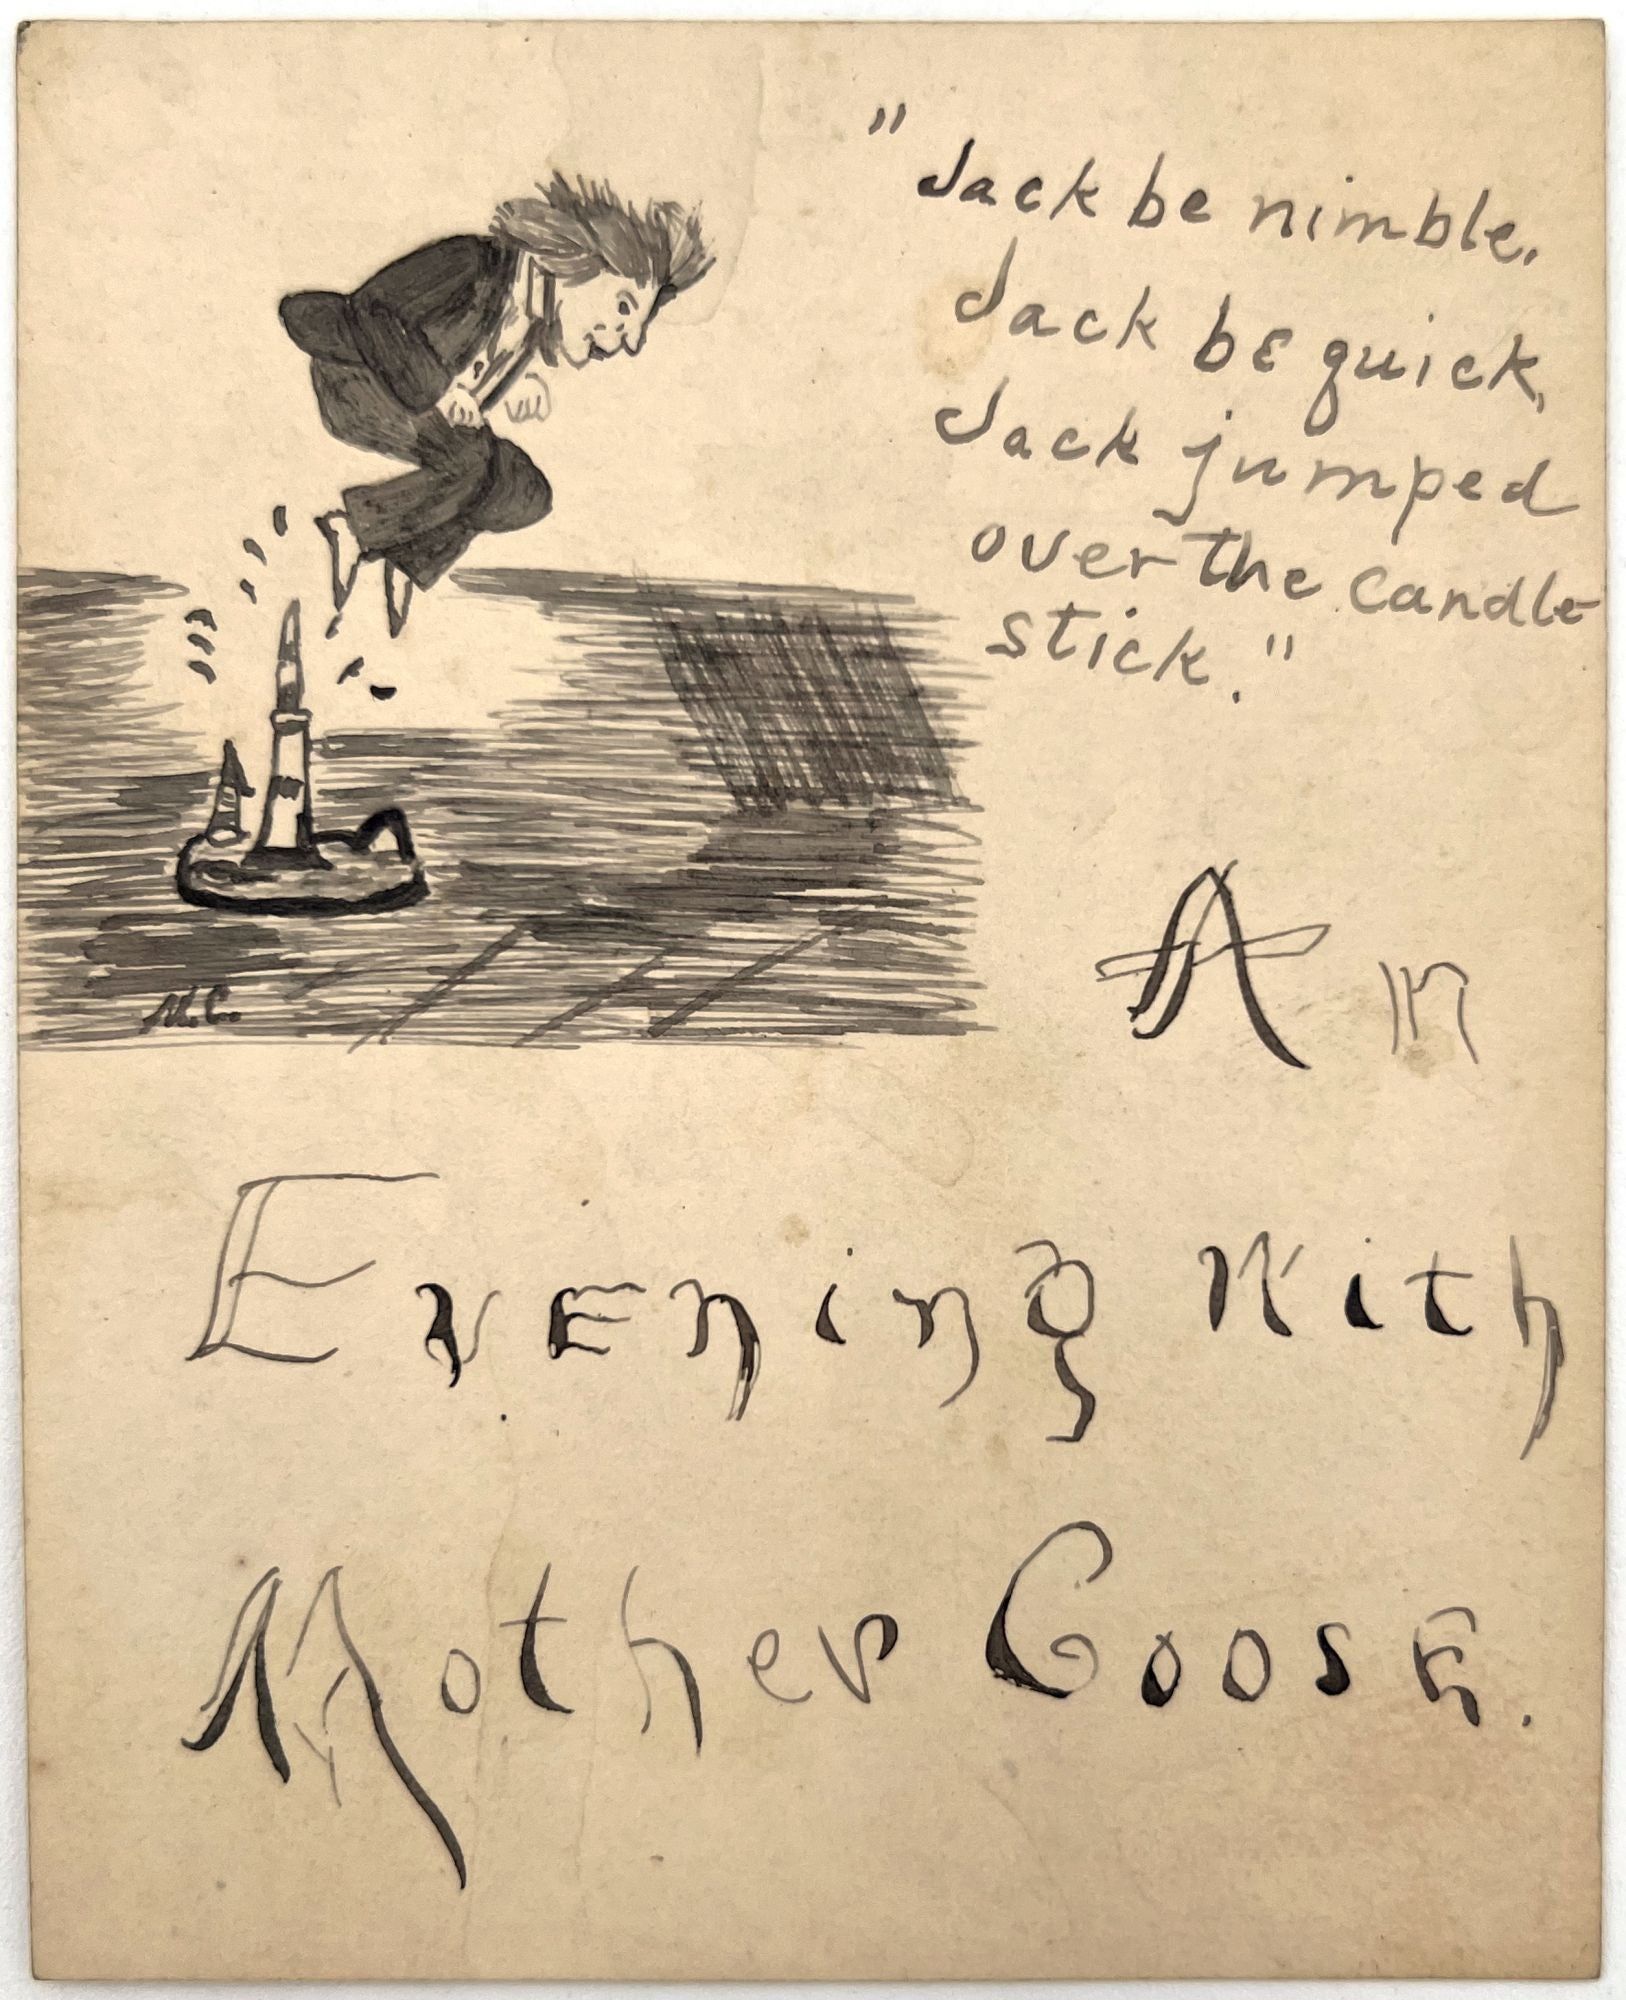 "Jack be nimble.
Jack be quick,
Jack jumped
over the candle-
stick."
An
Evening With
Mother Goose.